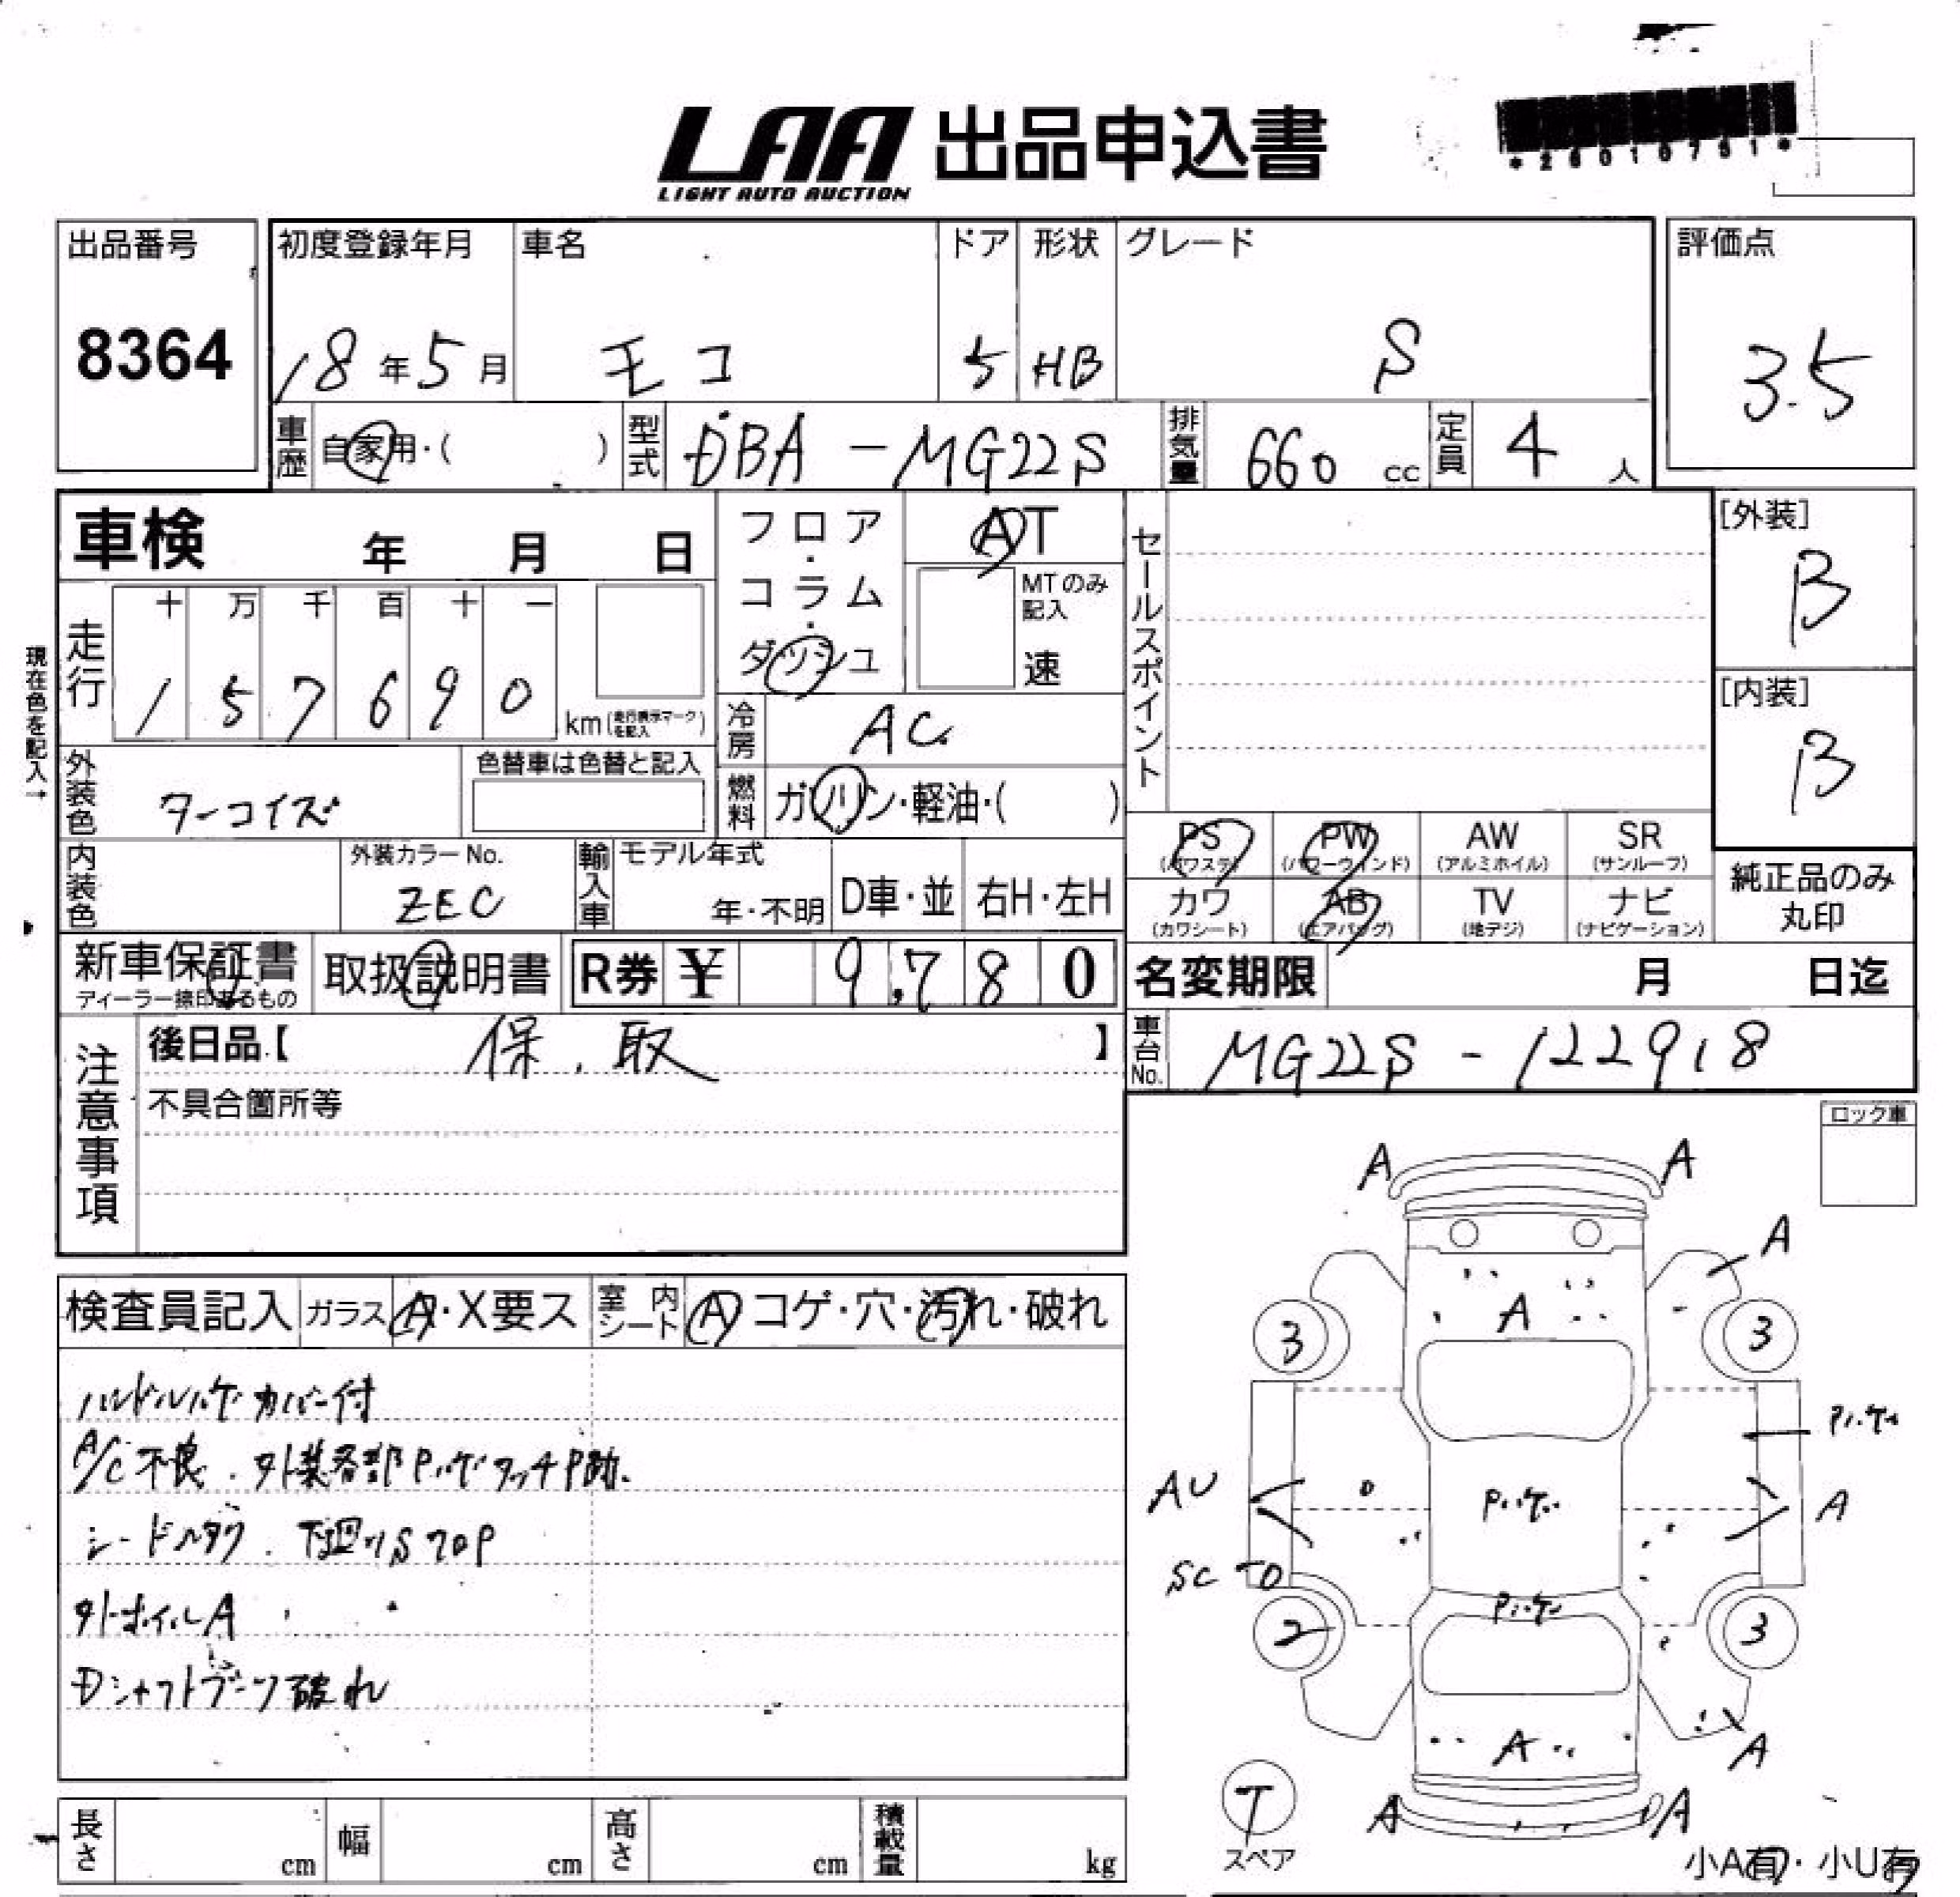 LAA 出品申込書
LIGHT AUTO AUCTION
*26010751*
出品番号 初度登録年月 車名 ドア 形状 グレード 評価点
8364 18年5月 モコ 5 HB S 3.5
車歴 自家用・( ) 型式 DBA-MG22S 排気量 660 cc 定員 4 人
車検 年 月 日
フロア・コラム・ダッシュ
AT
MTのみ記入
速
セールスポイント
[外装]
B
[内装]
B
現在色を記入→
走行 十 万 千 百 十 一
1 5 7 6 9 0 km (走行表示マークを記入)
冷房 AC
外装色 ターコイズ 色替車は色替と記入
燃料 ガソリン・軽油・( )
内装色 外装カラーNo. ZEC
輸入車 モデル年式 年・不明 D車・並 右H・左H
PS (パワステ) PW (パワーウィンド) AW (アルミホイル) SR (サンルーフ)
カワ (カワシート) AB (エアバッグ) TV (地デジ) ナビ (ナビゲーション)
純正品のみ
丸印
新車保証書 ディーラー捺印あるもの 取扱説明書 R券 ¥ 9,780
名変期限 月 日迄
注意事項
後日品【 保、取 】
車台No. MG22S-122918
不具合箇所等
ロック車
検査員記入 ガラス A・X要ス 室内シート A コゲ・穴・汚れ・破れ
ハンドルハゲ カバー付
A/C不良. 外装各部Pハゲ タッチP跡.
下回りS
外ホイルA
Dシャフトブーツ破れ
A A
A
A
3 3
Pハゲ
AU Pハゲ A
SC
Pハゲ
2 3
A A
T
スペア
A A
小A有・小U有
長さ cm 幅 cm 高さ cm 積載量 kg